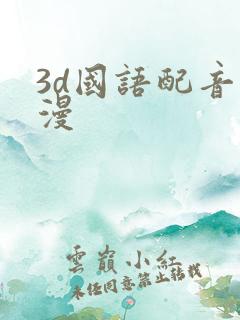 3d國語配音
漫
雲嶺小紅
未经同意禁止转载